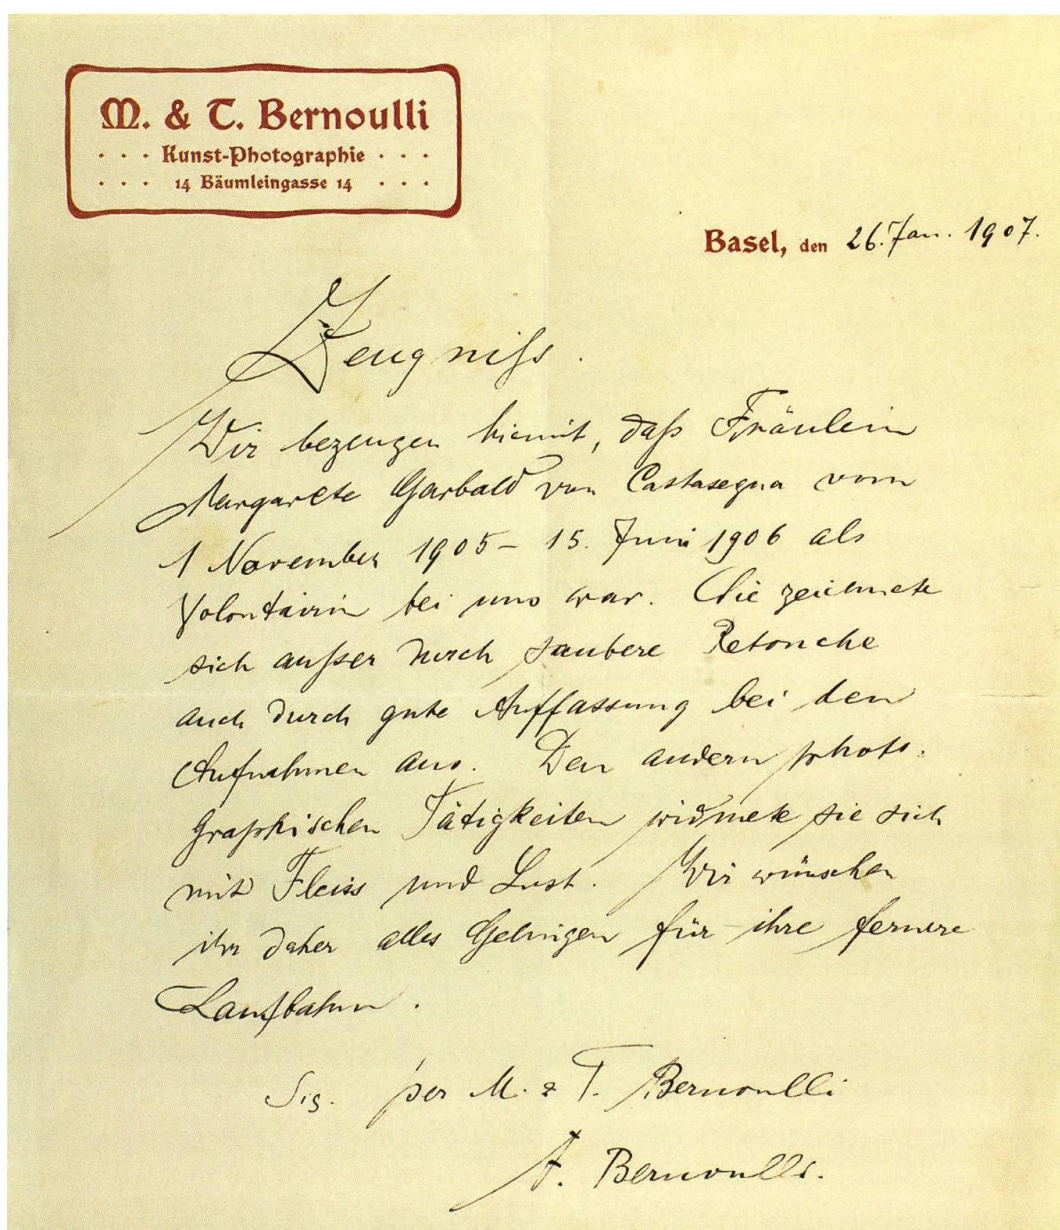 M. & T. Bernoulli
· · · Kunst-Photographie · · ·
· · · 14 Bäumleingasse 14 · · ·
Basel, den 26. Jan. 1907.
Zeugniss.
Wir bezeugen hiemit, daſs Fräulein
Margarete Garbald von Castasegna vom
1 November 1905 – 15. Juni 1906 als
Volontairin bei uns war. Sie zeichnete
sich auſser durch saubere Retouche
auch durch gute Auffassung bei den
Aufnahmen aus. Den andern photo-
graphischen Tätigkeiten widmete sie sich
mit Fleiss und Lust. Wir wünschen
ihr daher alles Gelingen für ihre fernere
Laufbahn.
Sig. per M. & T. Bernoulli
A. Bernoulli.